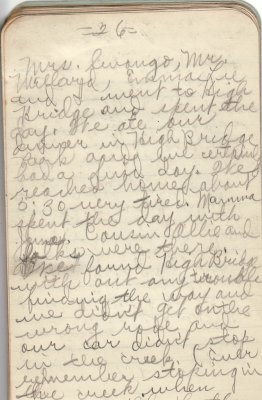 =26=
Mrs. Mr.
and I went to High
Bridge and spent the
day. We ate our
dinner in High Bridge
and we certainly
had a good day. We
reached home about
5:30 very tired. Mamma
spent the day with
Cousin Allie and
were there.
We found High Bridge
with out any trouble
finding the way and
we didn't get on the
wrong rode and
our car didn't stop
in the creek. (Ever
remember stoping in
the creek when